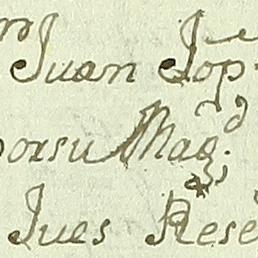 Juan Jop
por su Mag.d
Jues Rese